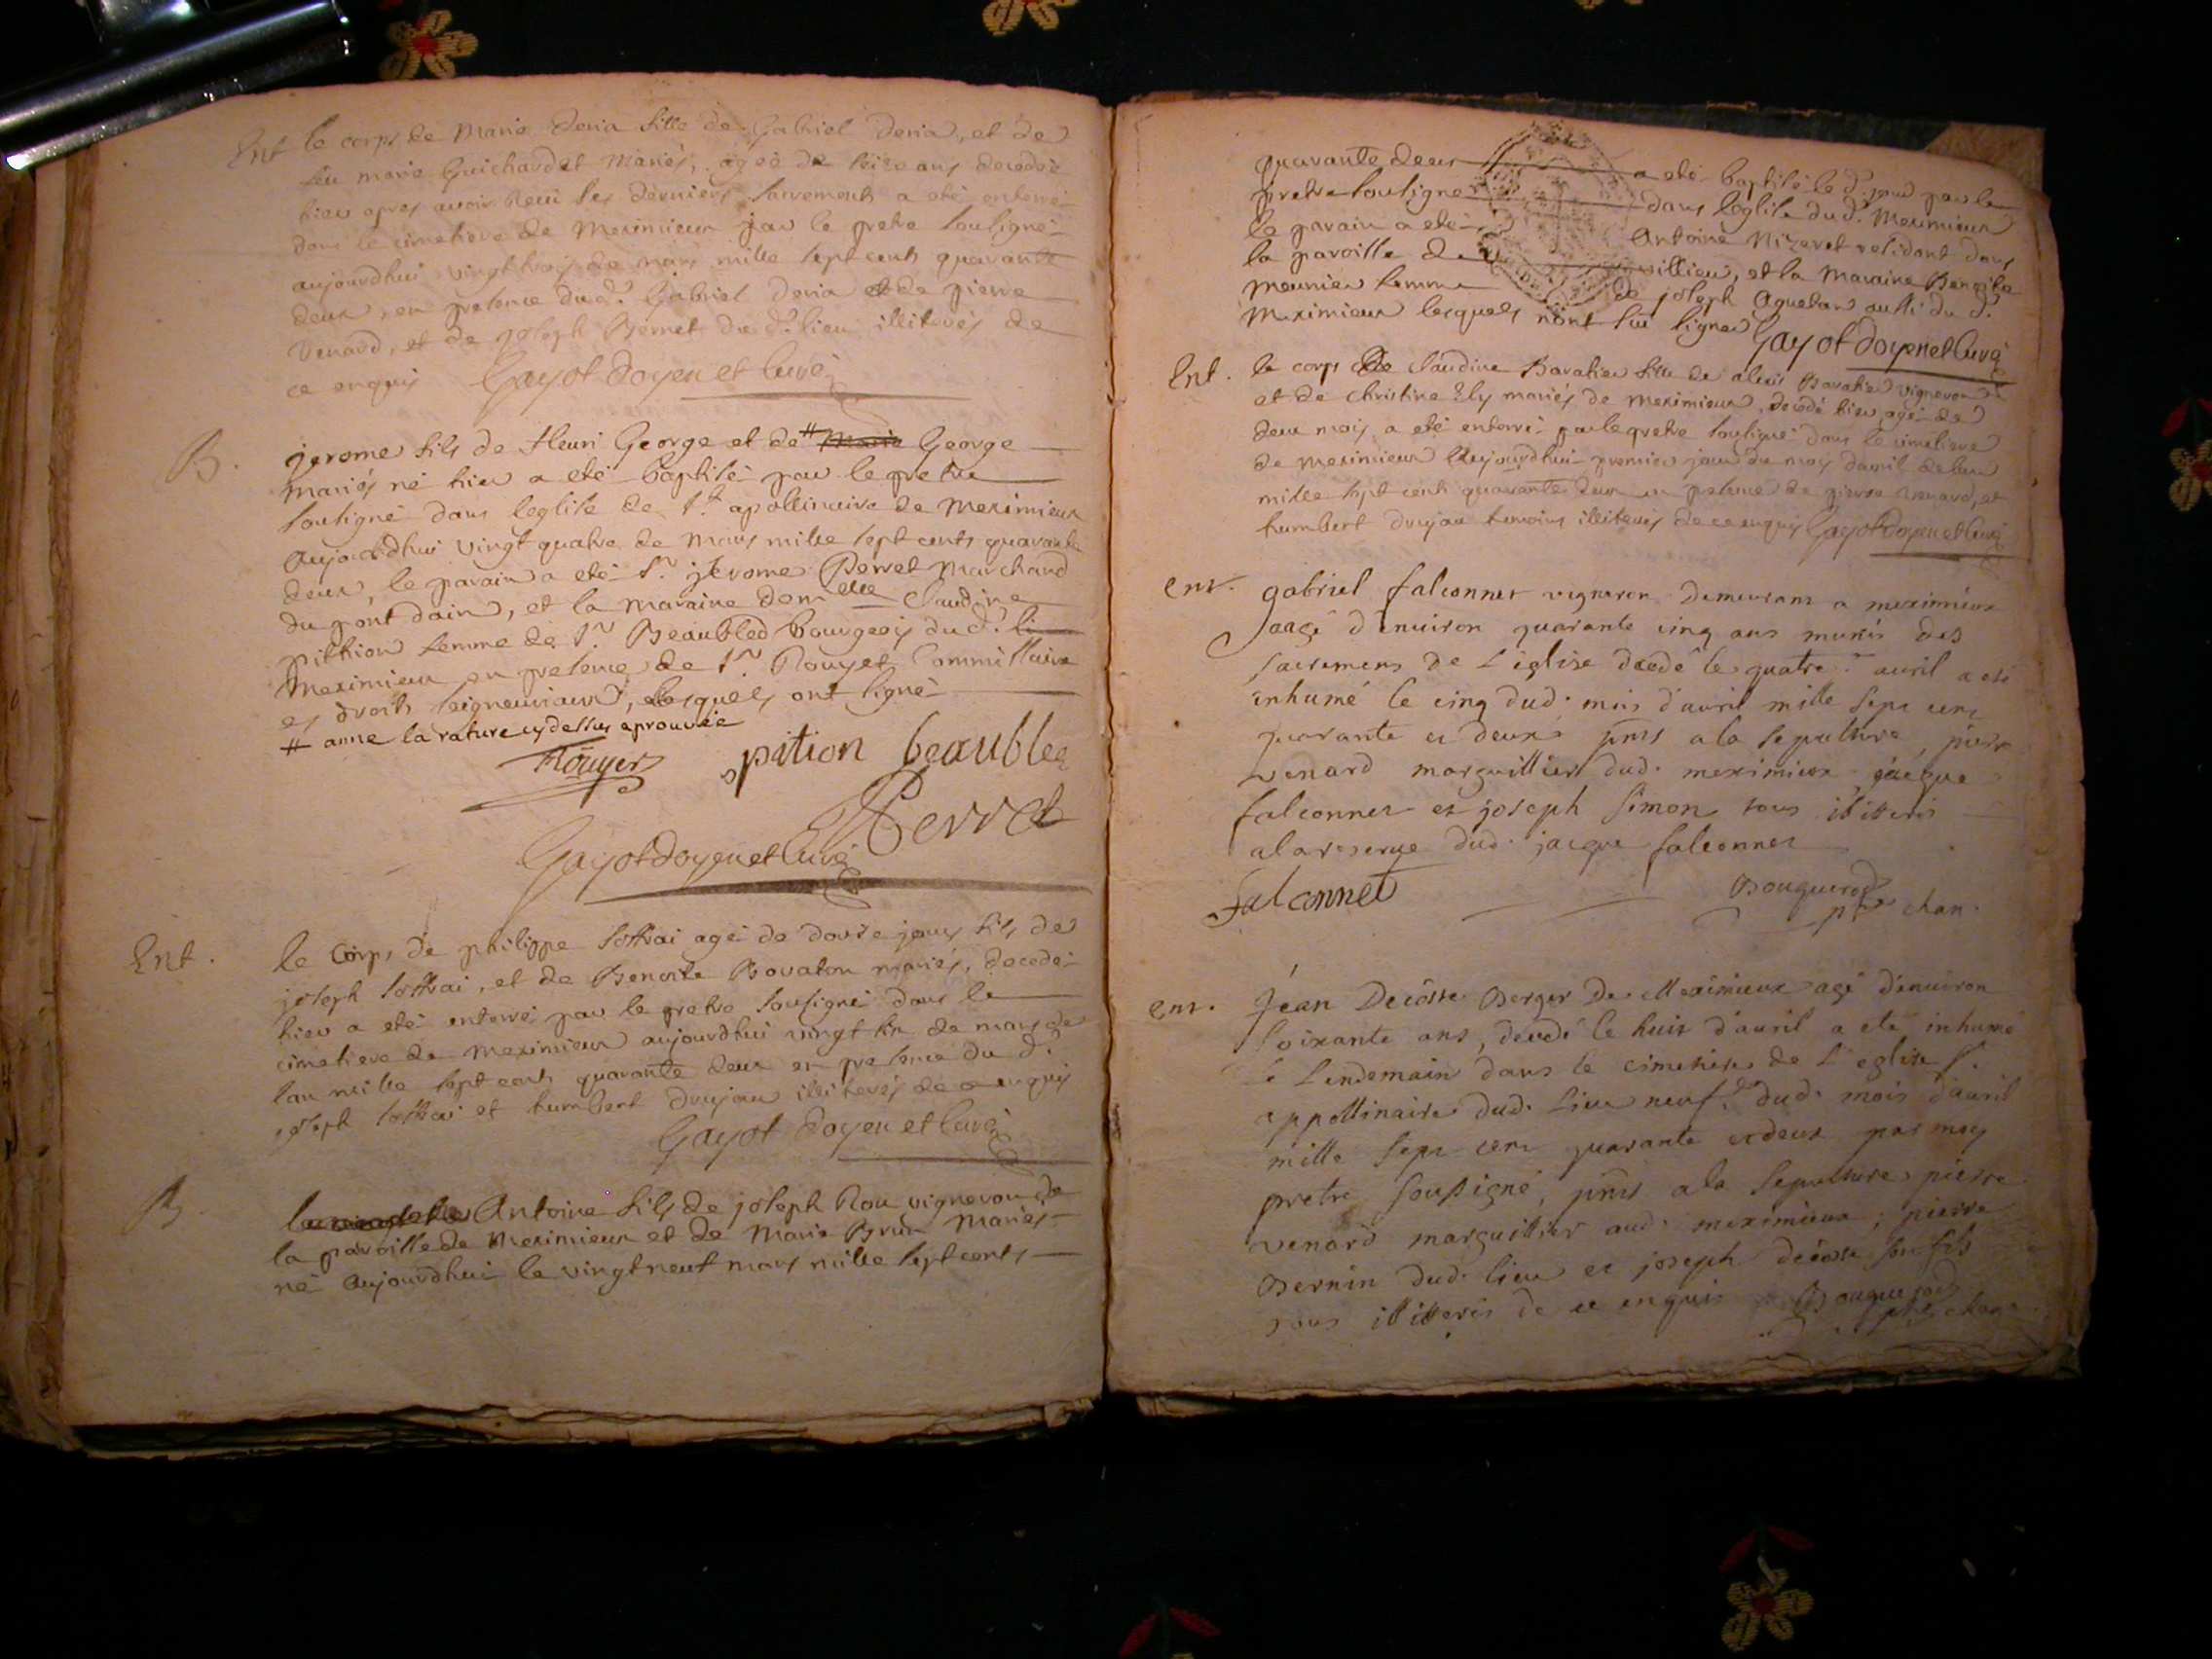 Ent le corps de Marie Deria fille de Gabriel Deria, et de
feu marie Guichardet mariés, agée de seize ans decedée
hier apres avoir Recu les derniers sacrements a eté enterré
dans le cimetiere de Meximieux par le pretre soussigné
aujourdhui vingt trois de mars mille sept cents quarante
deux, en presence du d. Gabriel Deria et de pierre
Venard, et de joseph Bernet du d. lieu illiterés de
ce enquis Gayot doyen et curé
B. jerome fils de fleuri George et de # Marie George
mariés né hier a eté baptisé par le pretre
soussigné dans leglise de st. apollinaire de Meximieux
aujourdhui vingt quatre de mars mille sept cents quarante
deux, le parain a eté sr. jerome Perret Marchand
du pont dain, et la maraine demelle Claudine
pithion femme de sr Beaubled bourgeois du d. li
Meximieux en presence de sr Rouyer Commissaire
es droits seigneuriaux, lesquels ont signé
# anne la rature cy dessus aprouvée
Rouyer pition beaubled
Perret
Gayot doyen et curé
Ent. le corps de philippe agé de douze jours fils de
joseph, et de Benoite Bovaton mariés, decedé
hier a eté enterré par le pretre soussigné dans le
cimetiere de Meximieux aujourdhui vingt six de mars de
lan mille sept cents quarante deux en presence du d.
joseph et humbert Dujau illiterés de ce enquis
Gayot doyen et curé
B. Antoine fils de joseph Rou vigneron de
la paroisse de Meximieux et de Marie Brun Mariés
né aujourdhui le vingt neuf mars mille sept cents
quarante deux a eté baptisé le d. jour par le
pretre soussigné dans leglise du d. Meximieux
le parain a eté Antoine Nizeret residant dans
la paroisse de villieu, et la Maraine Benoite
meunier femme de joseph Aguetan aussi du d.
Meximieux lesquels n'ont sù signer Gayot doyen et curé
Ent. le corps de Claudine Bavatier fille de alexis Bavatier vigneron
et de Christine Ely mariés de Meximieux, decedé hier, agé de
deux mois a eté enterré par le pretre soussigné dans le cimetiere
de Meximieux aujourdhui premier jour du mois davril de lan
mille sept cents quarante deux en presence de pierre venard, et
humbert dujau temoins illiterés de ce enquis Gayot doyen et curé
ent. gabriel falconnet vigneron demeurant a meximieux
aagé d'enuiron quarante cinq ans munis des
sacremens de L'église décédé le quatre auril a eté
inhumé le cinq dud. mois d'auril mille sept cent
quarante et deux pnts a la sepulture, pierre
venard marguillier dud. meximieux, jacque
falconnet et joseph simon tous illitteris
a la reserue dud. jacque falconnet
falconnet Bouguerod
ptre chan.
ent. jean Decôsse Berger de Meximieux agé d'enuiron
soixante ans, decedé le huit d'auril a eté inhumé
le Lendemain dans le cimetiere de L'eglise St.
appollinaire dud. Lieu neuf dud. mois d'auril
mille sept cent quarante et deux par moy
pretre soussigné, pnts a la sepulture pierre
venard marguillier aud. meximieux, pierre
Bernin dud. lieu et joseph decôsse son fils
tous illitteris de ce enquis Bouguerod
ptre chan.